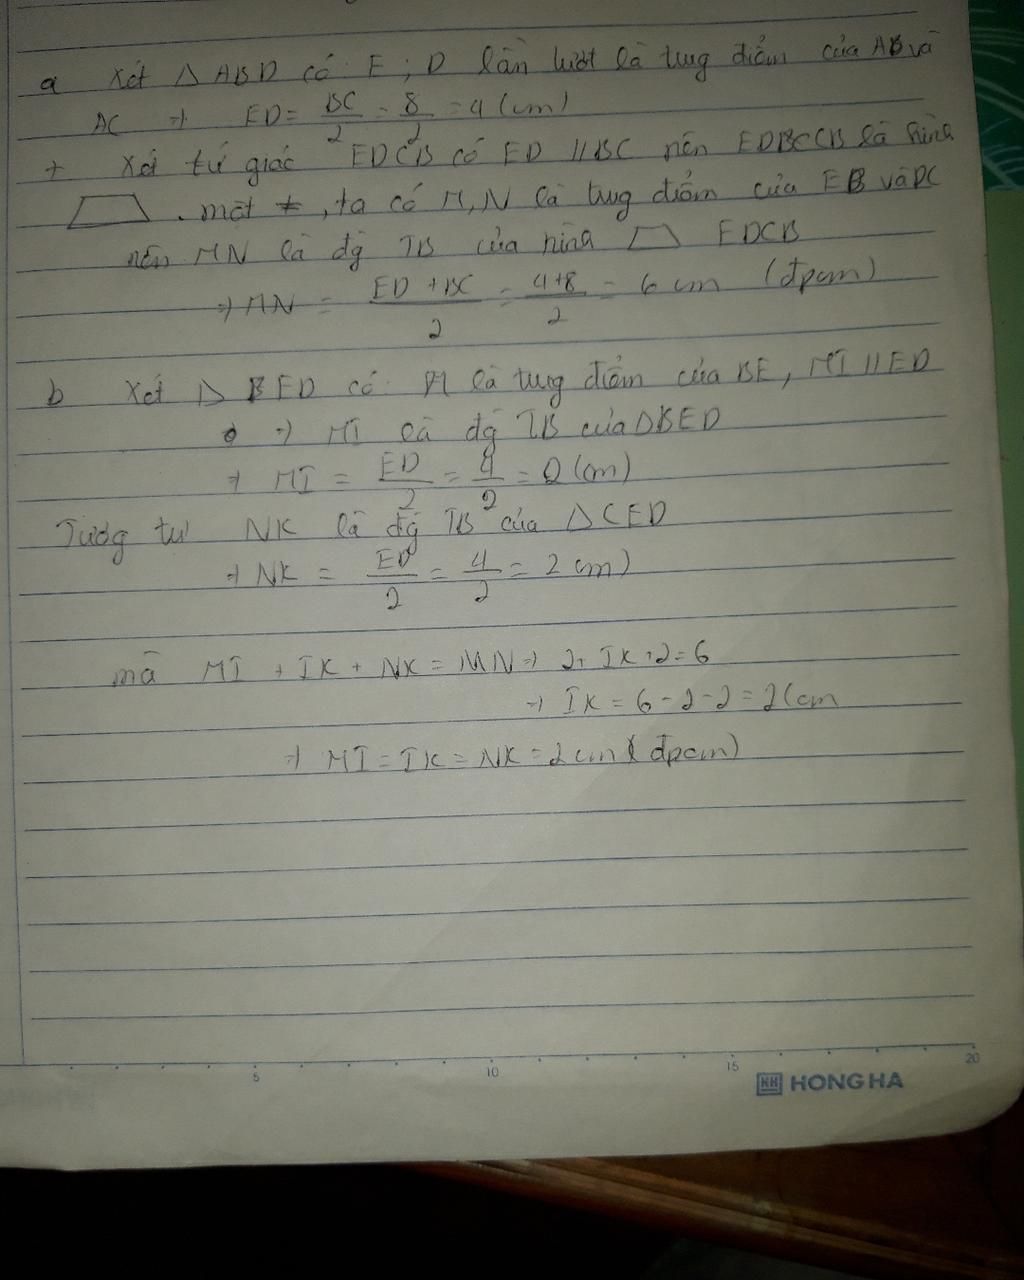 a Xét △ ABD có E ; D lần lượt là trug điểm của AB và
AC ⇒ ED = BC/2 = 8/2 = 4 (cm)
+ Xét tứ giác EDCB có ED // BC nên EDBCCB là hìnhh
. mặt ≠, ta có M, N là trug điểm của EB và DC
nên MN là đg TB của hìnhh EDCB
⇒ MN = ED + BC/2 = 4+8/2 = 6 cm (đpcm)
b Xét △ BED có M là trug điểm của BE, MI // ED
⇒ MI là đg TB của △BED
⇒ MI = ED/2 = 4/2 = 2 (cm)
Tươg tự NK là đg TB của △CED
⇒ NK = ED/2 = 4/2 = 2 cm)
mà MI + IK + NK = MN ⇒ 2+ IK +2 = 6
⇒ IK = 6 - 2 - 2 = 2 (cm
⇒ MI = IK = NK = 2 cm ( đpcm)
5 10 15 20
HH HONG HA